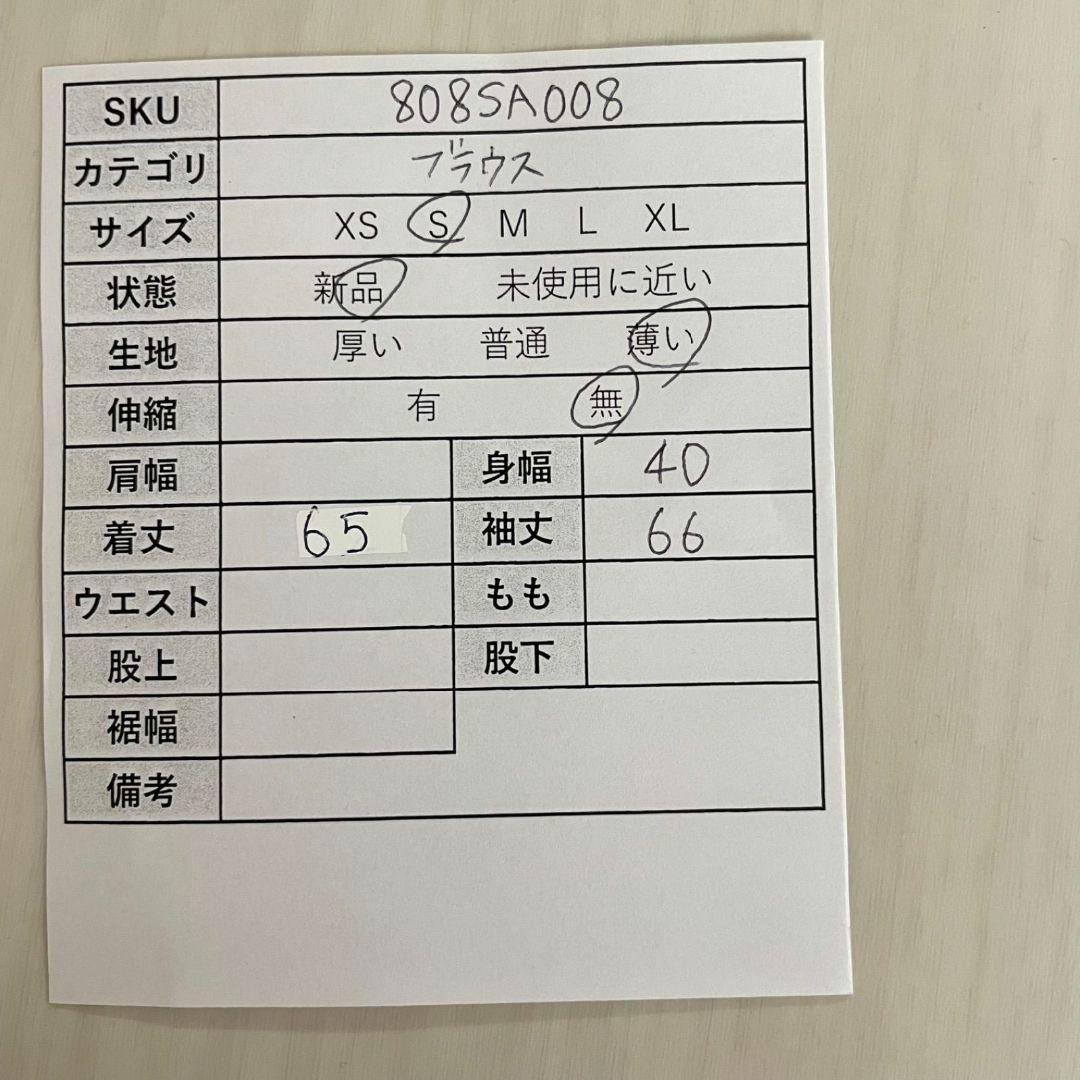 SKU 808SA008
カテゴリ ブラウス
サイズ XS S M L XL
状態 新品 未使用に近い
生地 厚い 普通 薄い
伸縮 有 無
肩幅 身幅 40
着丈 65 袖丈 66
ウエスト もも
股上 股下
裾幅
備考